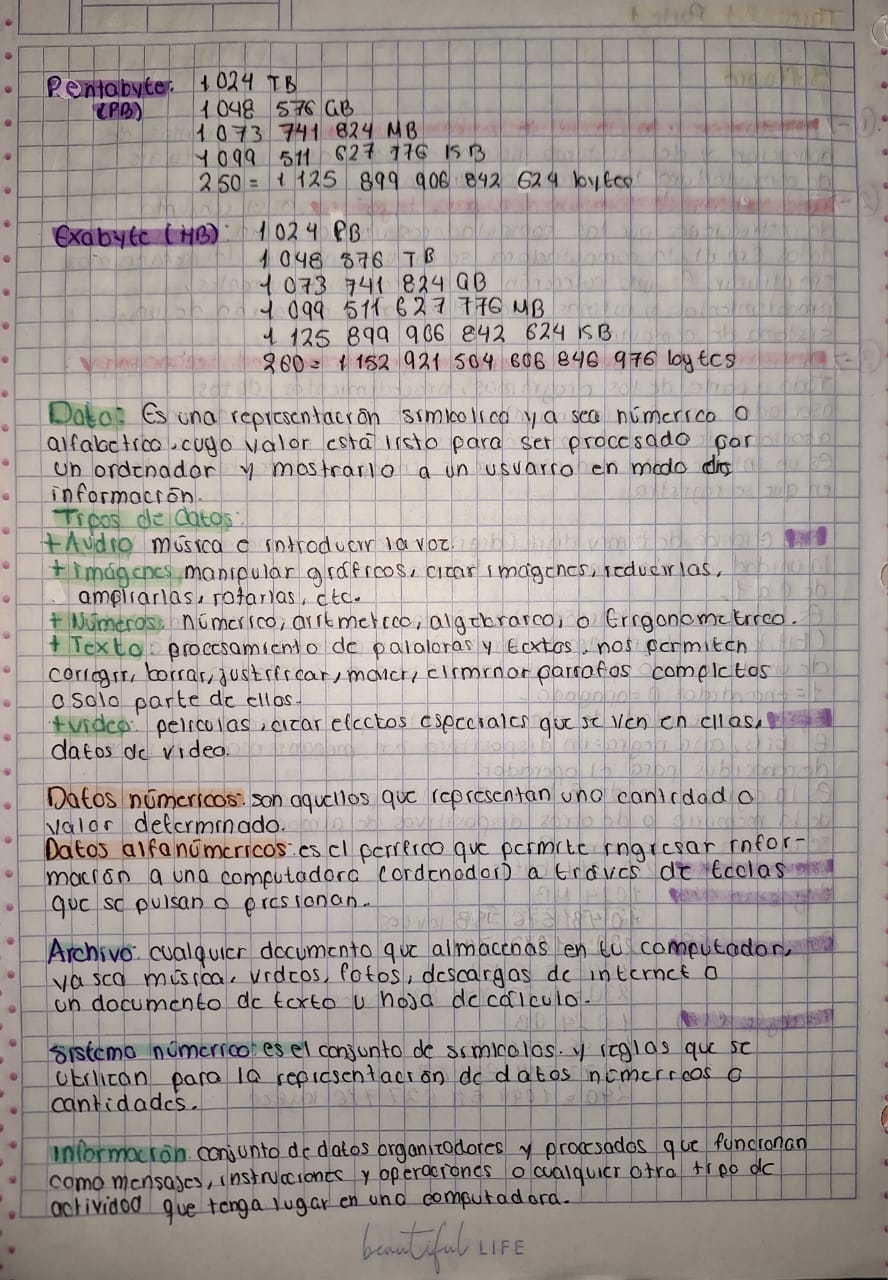 Pentabyte: 1 024 TB
(PB) 1 048 576 GB
1 073 741 824 MB
1 099 511 627 776 KB
250 = 1 125 899 906 842 624 bytes
Exabyte (HB): 1 024 PB
1 048 576 TB
1 073 741 824 GB
1 099 511 627 776 MB
1 125 899 906 842 624 KB
260 = 1 152 921 504 606 846 976 bytes
Dato: Es una representación simbolica ya sea númerica o
alfabetica, cuyo valor está listo para ser procesado por
un ordenador y mostrarlo a un usuario en modo de
información.
Tipos de datos:
+ Audio música e introducir la voz.
+ imágenes, manipular gráficos, crear imágenes, reducirlas,
ampliarlas, rotarlas, etc.
+ Números. númerico, aritmetico, algebraico, o trigonometrico.
+ Texto: procesamiento de palabras y textos, nos permiten
corregir, borrar, justificar, mover, eliminar parrafos completos
o solo parte de ellos.
+ video: peliculas, crear efectos especiales que se ven en ellas,
datos de video.
Datos númericos: son aquellos que representan una cantidad o
valor determinado.
Datos alfanúmericos: es el periferico que permite ingresar infor-
mación a una computadora (ordenador) a tráves de teclas
que se pulsan o presionan.
Archivo: cualquier documento que almacenas en tu computador,
ya sea música, videos, fotos, descargas de internet o
un documento de texto u hoja de cálculo.
Sistema númerico: es el conjunto de simbolos y reglas que se
utilizan para la representación de datos númericos o
cantidades.
Información. conjunto de datos organizadores y procesados que funcionan
como mensajes, instrucciones y operaciones o cualquier otro tipo de
actividad que tenga lugar en una computadora.
beautiful LIFE